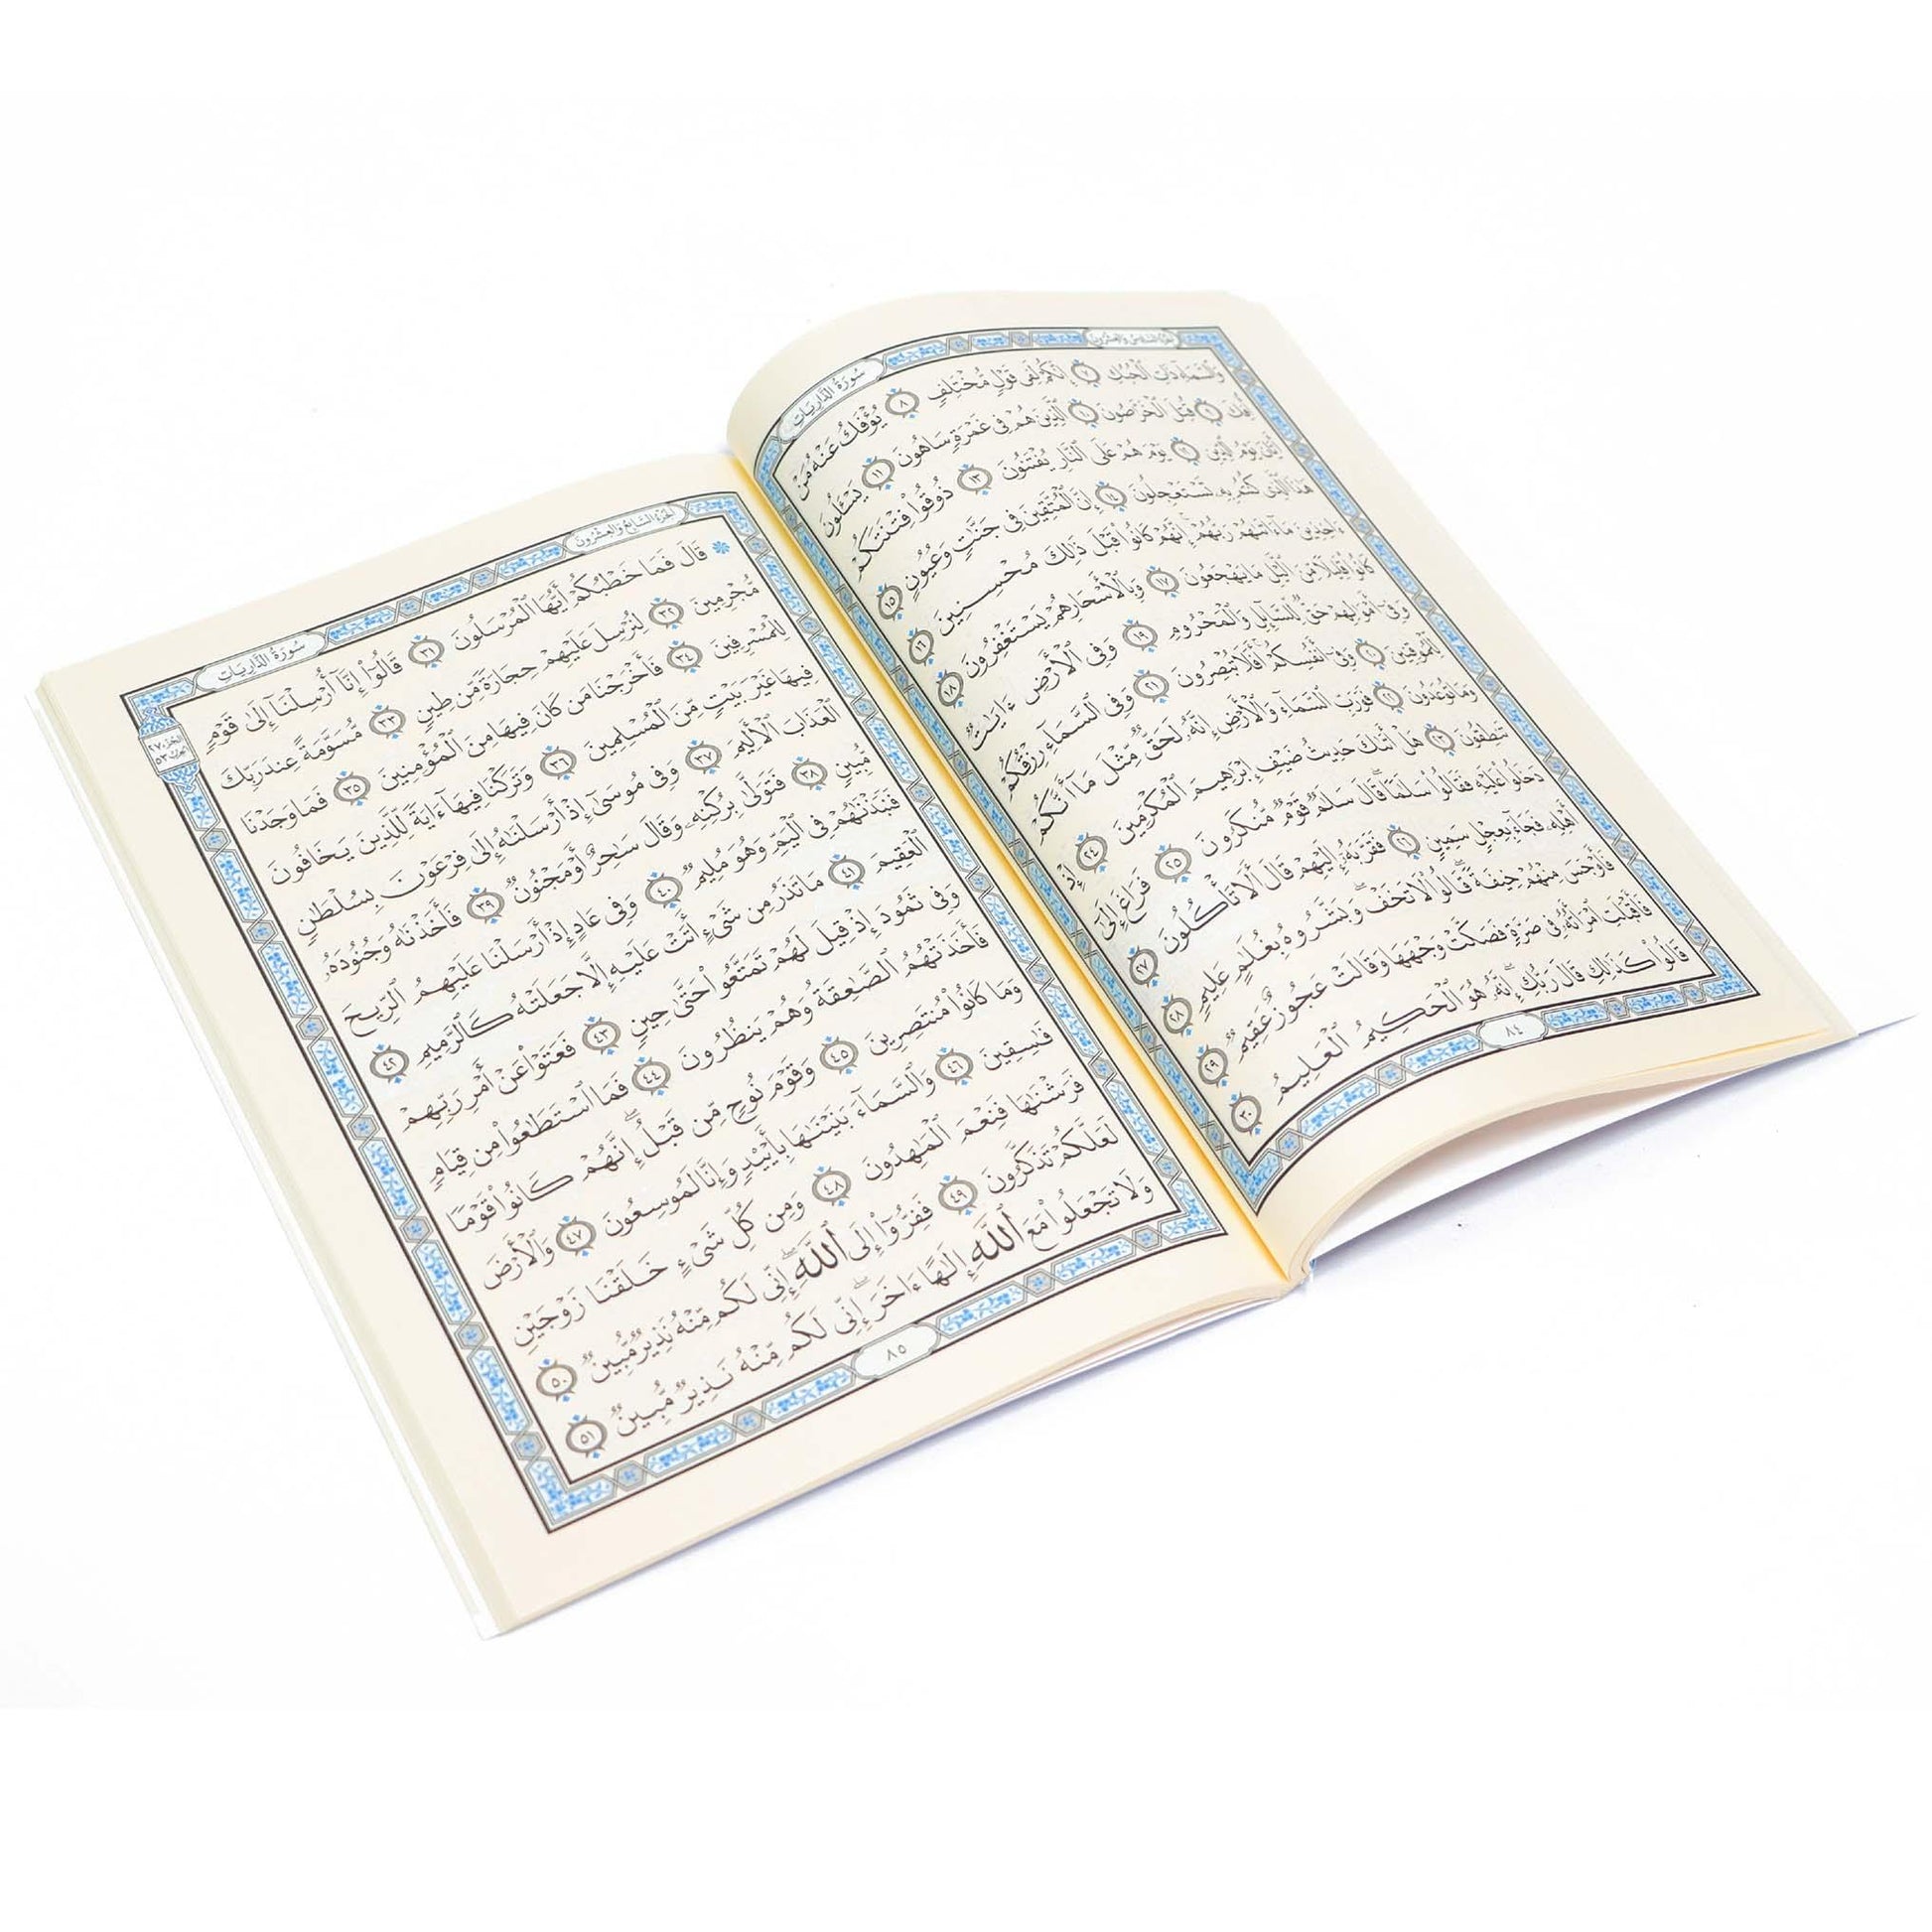 الجزء السادس والعشرون
سورة الذاريات
وَٱلسَّمَآءِ ذَاتِ ٱلْحُبُكِ ٧ إِنَّكُمْ لَفِى قَوْلٍ مُّخْتَلِفٍ ٨ يُؤْفَكُ عَنْهُ مَنْ
أُفِكَ ٩ قُتِلَ ٱلْخَرَّٰصُونَ ١٠ ٱلَّذِينَ هُمْ فِى غَمْرَةٍ سَاهُونَ ١١ يَسْـَٔلُونَ
أَيَّانَ يَوْمُ ٱلدِّينِ ١٢ يَوْمَ هُمْ عَلَى ٱلنَّارِ يُفْتَنُونَ ١٣ ذُوقُوا۟ فِتْنَتَكُمْ
هَٰذَا ٱلَّذِى كُنتُم بِهِۦ تَسْتَعْجِلُونَ ١٤ إِنَّ ٱلْمُتَّقِينَ فِى جَنَّٰتٍ وَعُيُونٍ ١٥
ءَاخِذِينَ مَآ ءَاتَىٰهُمْ رَبُّهُمْ إِنَّهُمْ كَانُوا۟ قَبْلَ ذَٰلِكَ مُحْسِنِينَ ١٦
كَانُوا۟ قَلِيلًا مِّنَ ٱلَّيْلِ مَا يَهْجَعُونَ ١٧ وَبِٱلْأَسْحَارِ هُمْ يَسْتَغْفِرُونَ ١٨
وَفِىٓ أَمْوَٰلِهِمْ حَقٌّ لِّلسَّآئِلِ وَٱلْمَحْرُومِ ١٩ وَفِى ٱلْأَرْضِ ءَايَٰتٌ
لِّلْمُوقِنِينَ ٢٠ وَفِىٓ أَنفُسِكُمْ أَفَلَا تُبْصِرُونَ ٢١ وَفِى ٱلسَّمَآءِ رِزْقُكُمْ
وَمَا تُوعَدُونَ ٢٢ فَوَرَبِّ ٱلسَّمَآءِ وَٱلْأَرْضِ إِنَّهُۥ لَحَقٌّ مِّثْلَ مَآ أَنَّكُمْ
تَنطِقُونَ ٢٣ هَلْ أَتَىٰكَ حَدِيثُ ضَيْفِ إِبْرَٰهِيمَ ٱلْمُكْرَمِينَ ٢٤ إِذْ
دَخَلُوا۟ عَلَيْهِ فَقَالُوا۟ سَلَٰمًا ۖ قَالَ سَلَٰمٌ قَوْمٌ مُّنكَرُونَ ٢٥ فَرَاغَ إِلَىٰٓ
أَهْلِهِۦ فَجَآءَ بِعِجْلٍ سَمِينٍ ٢٦ فَقَرَّبَهُۥٓ إِلَيْهِمْ قَالَ أَلَا تَأْكُلُونَ ٢٧
فَأَوْجَسَ مِنْهُمْ خِيفَةً ۖ قَالُوا۟ لَا تَخَفْ ۖ وَبَشَّرُوهُ بِغُلَٰمٍ عَلِيمٍ ٢٨
فَأَقْبَلَتِ ٱمْرَأَتُهُۥ فِى صَرَّةٍ فَصَكَّتْ وَجْهَهَا وَقَالَتْ عَجُوزٌ عَقِيمٌ ٢٩
قَالُوا۟ كَذَٰلِكِ قَالَ رَبُّكِ ۖ إِنَّهُۥ هُوَ ٱلْحَكِيمُ ٱلْعَلِيمُ ٣٠
٨٤
الجزء السابع والعشرون
سورة الذاريات
۞ قَالَ فَمَا خَطْبُكُمْ أَيُّهَا ٱلْمُرْسَلُونَ ٣١ قَالُوٓا۟ إِنَّآ أُرْسِلْنَآ إِلَىٰ قَوْمٍ
مُّجْرِمِينَ ٣٢ لِنُرْسِلَ عَلَيْهِمْ حِجَارَةً مِّن طِينٍ ٣٣ مُّسَوَّمَةً عِندَ رَبِّكَ
لِلْمُسْرِفِينَ ٣٤ فَأَخْرَجْنَا مَن كَانَ فِيهَا مِنَ ٱلْمُؤْمِنِينَ ٣٥ فَمَا وَجَدْنَا
فِيهَا غَيْرَ بَيْتٍ مِّنَ ٱلْمُسْلِمِينَ ٣٦ وَتَرَكْنَا فِيهَآ ءَايَةً لِّلَّذِينَ يَخَافُونَ
ٱلْعَذَابَ ٱلْأَلِيمَ ٣٧ وَفِى مُوسَىٰٓ إِذْ أَرْسَلْنَٰهُ إِلَىٰ فِرْعَوْنَ بِسُلْطَٰنٍ
مُّبِينٍ ٣٨ فَتَوَلَّىٰ بِرُكْنِهِۦ وَقَالَ سَٰحِرٌ أَوْ مَجْنُونٌ ٣٩ فَأَخَذْنَٰهُ وَجُنُودَهُۥ
فَنَبَذْنَٰهُمْ فِى ٱلْيَمِّ وَهُوَ مُلِيمٌ ٤٠ وَفِى عَادٍ إِذْ أَرْسَلْنَا عَلَيْهِمُ ٱلرِّيحَ
ٱلْعَقِيمَ ٤١ مَا تَذَرُ مِن شَىْءٍ أَتَتْ عَلَيْهِ إِلَّا جَعَلَتْهُ كَٱلرَّمِيمِ ٤٢
وَفِى ثَمُودَ إِذْ قِيلَ لَهُمْ تَمَتَّعُوا۟ حَتَّىٰ حِينٍ ٤٣ فَعَتَوْا۟ عَنْ أَمْرِ رَبِّهِمْ
فَأَخَذَتْهُمُ ٱلصَّٰعِقَةُ وَهُمْ يَنظُرُونَ ٤٤ فَمَا ٱسْتَطَٰعُوا۟ مِن قِيَامٍ
وَمَا كَانُوا۟ مُنتَصِرِينَ ٤٥ وَقَوْمَ نُوحٍ مِّن قَبْلُ ۖ إِنَّهُمْ كَانُوا۟ قَوْمًا
فَٰسِقِينَ ٤٦ وَٱلسَّمَآءَ بَنَيْنَٰهَا بِأَيْي۟دٍ وَإِنَّا لَمُوسِعُونَ ٤٧ وَٱلْأَرْضَ
فَرَشْنَٰهَا فَنِعْمَ ٱلْمَٰهِدُونَ ٤٨ وَمِن كُلِّ شَىْءٍ خَلَقْنَا زَوْجَيْنِ
لَعَلَّكُمْ تَذَكَّرُونَ ٤٩ فَفِرُّوٓا۟ إِلَى ٱللَّهِ ۖ إِنِّى لَكُم مِّنْهُ نَذِيرٌ مُّبِينٌ ٥٠
وَلَا تَجْعَلُوا۟ مَعَ ٱللَّهِ إِلَٰهًا ءَاخَرَ ۖ إِنِّى لَكُم مِّنْهُ نَذِيرٌ مُّبِينٌ ٥١
الجزء ٢٧
الحزب ٥٣
٨٥